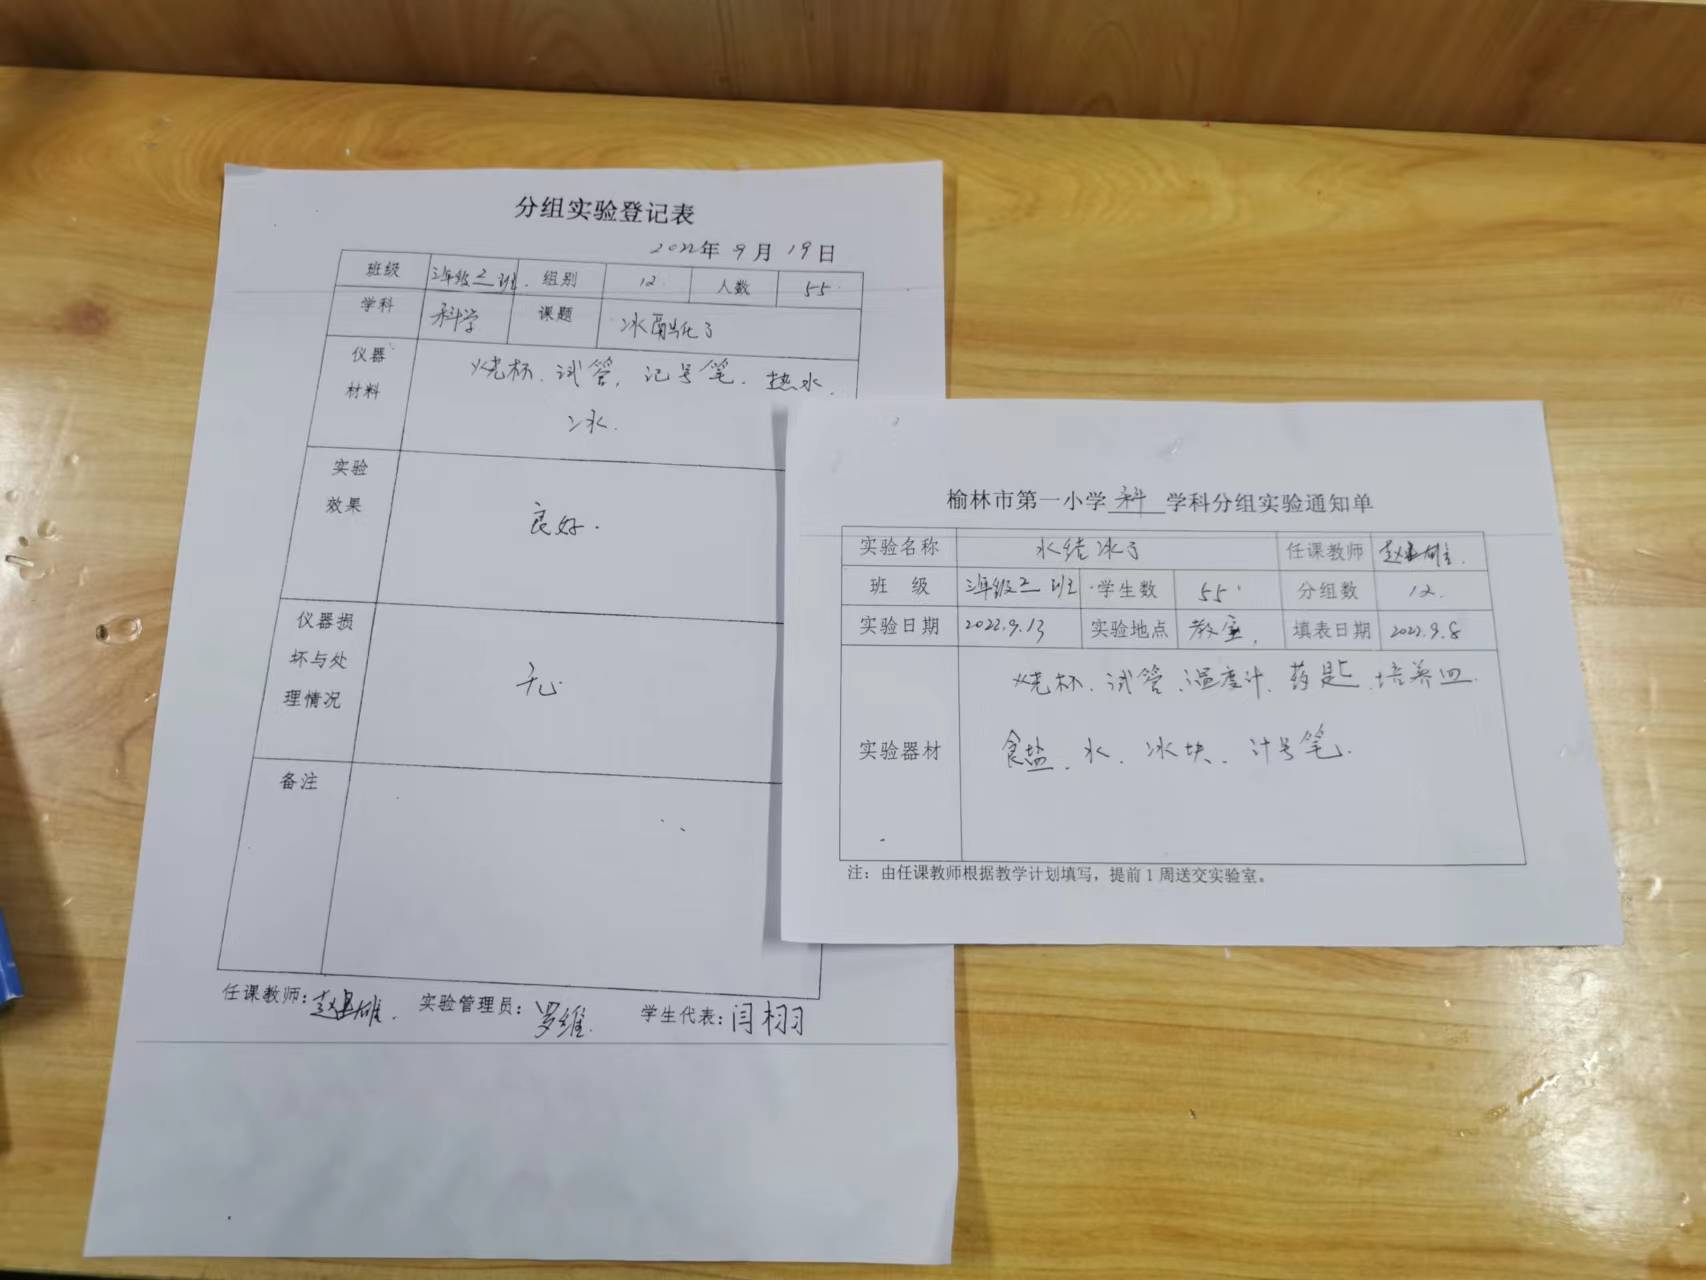 分组实验登记表
2022年9月19日
班级 三年级三班. 组别 12 人数 55
学科 科学 课题 冰融化了
仪器材料 烧杯、试管、记号笔、热水、
冰.
实验效果 良好.
仪器损坏与处理情况 无
备注
任课教师: 实验管理员:罗维. 学生代表:闫栩
榆林市第一小学 科 学科分组实验通知单
实验名称 水结冰了 任课教师
班 级 三年级三班 学生数 55 分组数 12.
实验日期 2022.9.13 实验地点 教室. 填表日期 2022.9.8
实验器材 烧杯、试管、温度计、药匙、培养皿
食盐、水、冰块、计号笔.
注:由任课教师根据教学计划填写,提前1周送交实验室。